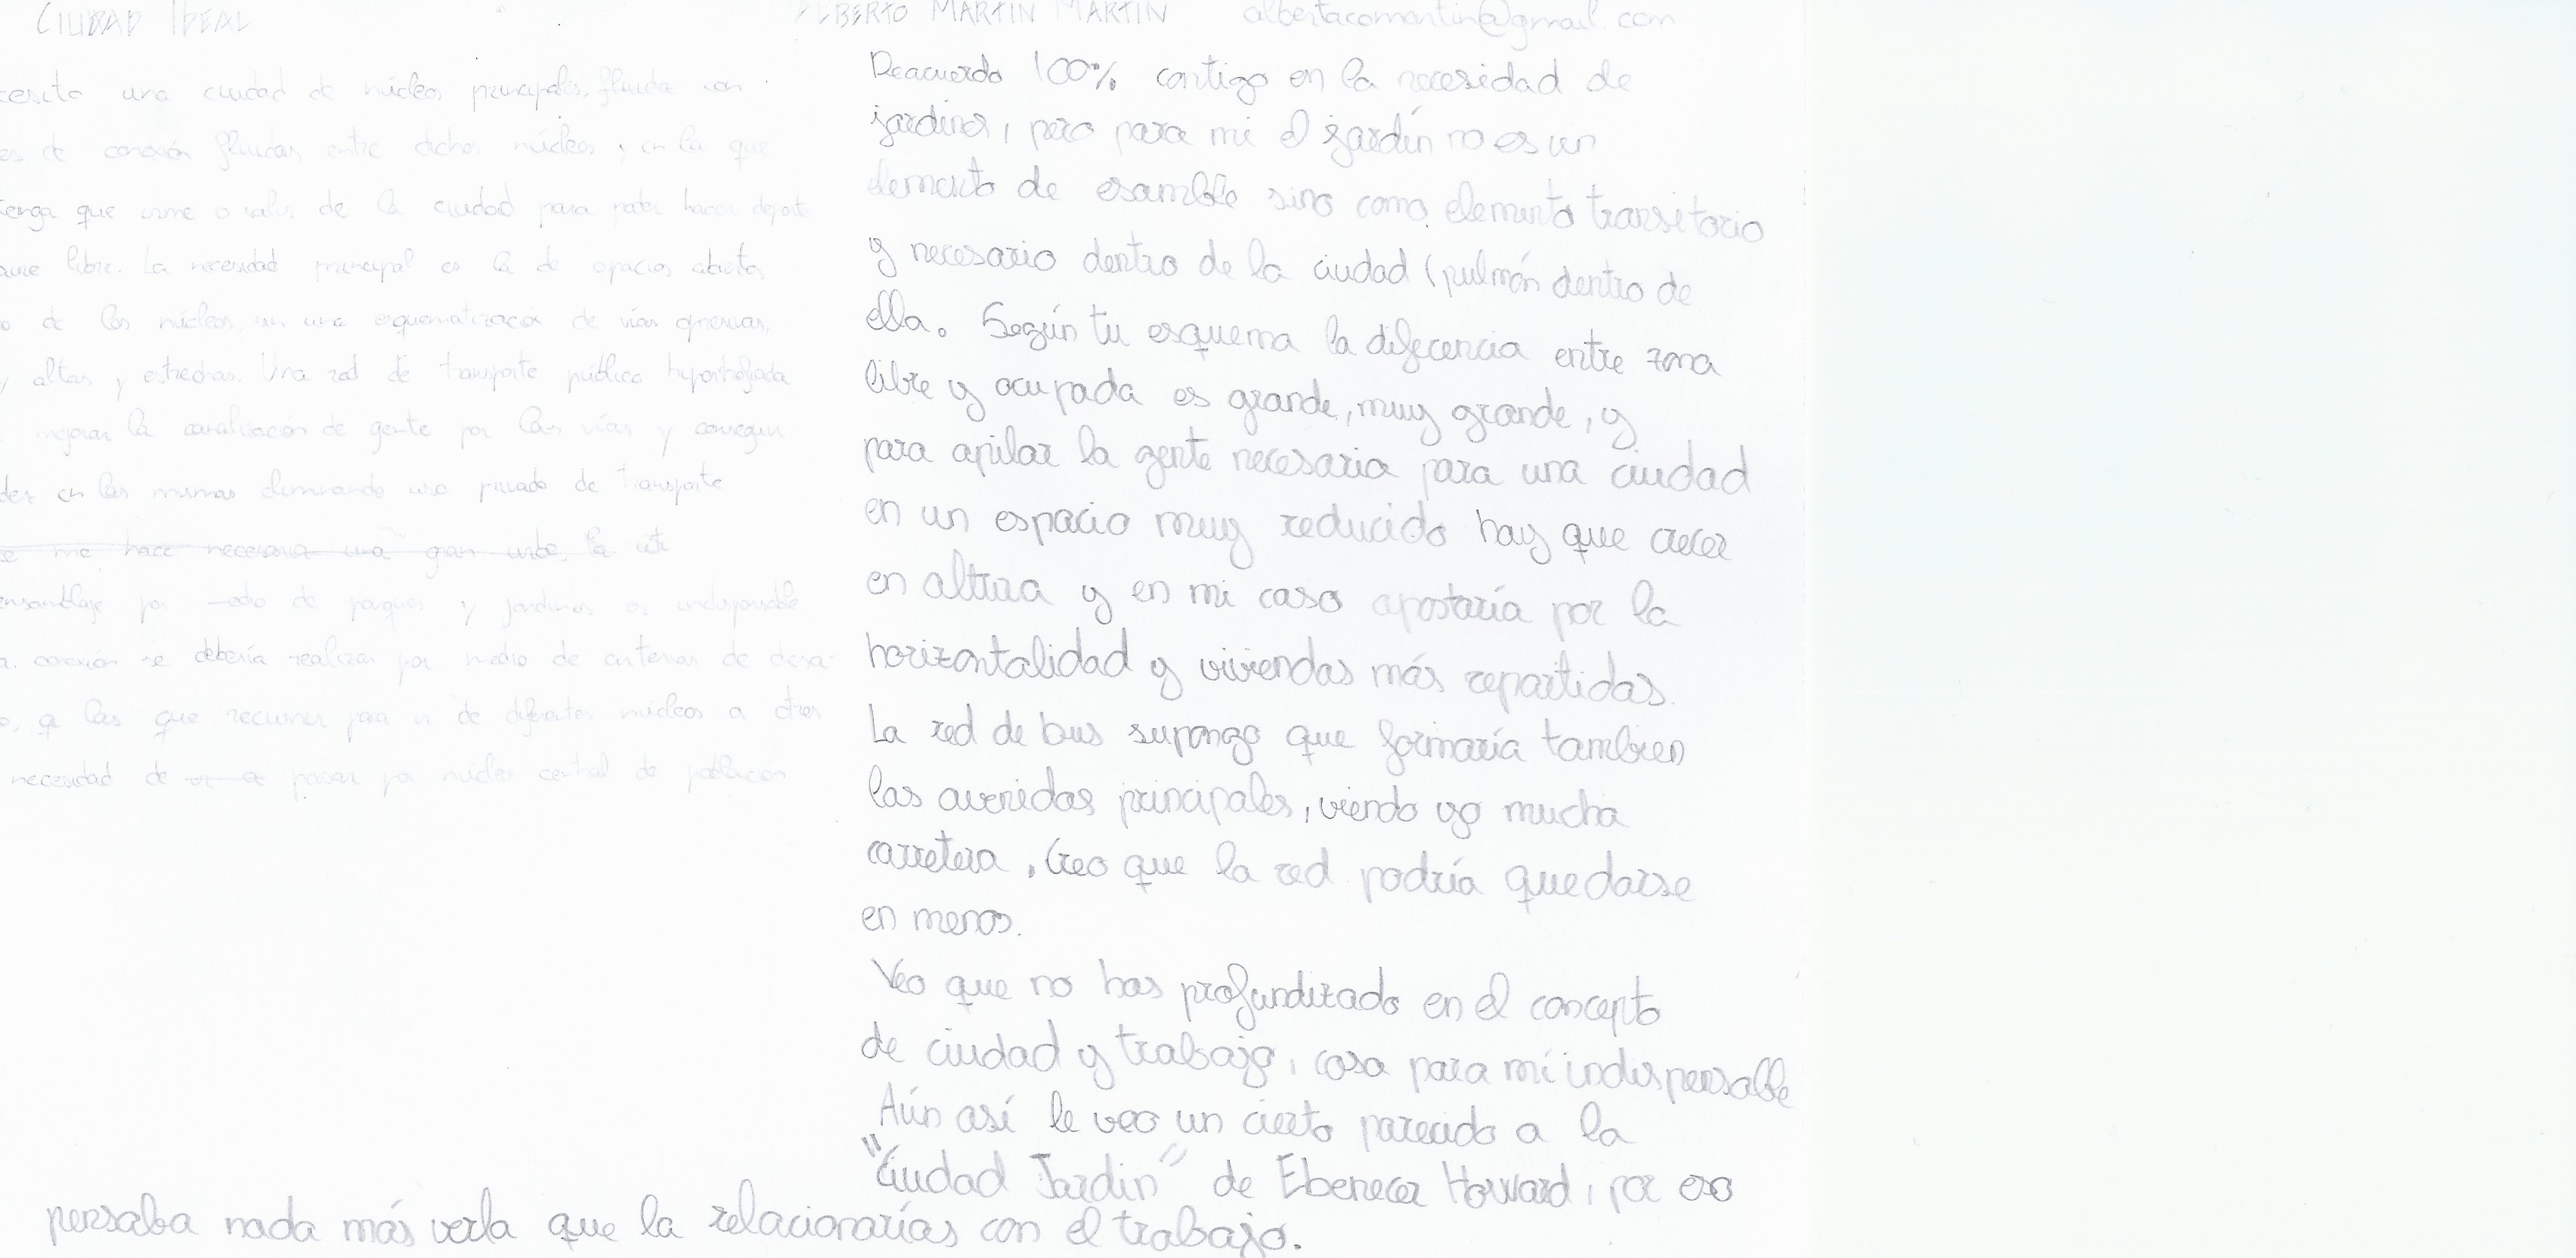 CIUDAD IDEAL
ALBERTO MARTIN MARTIN albertacomartin@gmail.com
una ciudad de núcleos principales, fluida con
es de conexión fluidas entre dichos núcleos, en la que
tenga que irme o salir de la ciudad para poder hacer deporte
aire libre. La necesidad principal es la de espacios abiertos
o de los núcleos, en una esquematización de vías
y altas y estrechas. Una red de transporte público
mejorar la canalización de gente por las vías y
en las mismas eliminando uso privado de transporte
se me hace necesaria una gran urbe, la
ensamblaje por medio de parques y jardines es indispensable.
conexión se debería realizar por medio de de
las que recurrir para ir de diferentes núcleos a otros
necesidad de pasar por núcleo central de población
Deacuerdo 100% contigo en la necesidad de
jardines, pero para mi el jardín no es un
elemento de esamble sino como elemento transitorio
y necesario dentro de la ciudad (pulmón dentro de
ella. Según tu esquema la diferencia entre zona
libre y ocupada es grande, muy grande, y
para apilar la gente necesaria para una ciudad
en un espacio muy reducido hay que crecer
en altura y en mi caso apostaría por la
horizontalidad y viviendas más repartidas.
La red de bus supongo que formaría tambien
las avenidas principales, viendo yo mucha
carretera, Creo que la red podría quedarse
en menos.
Veo que no has profundizado en el concepto
de ciudad y trabajo, cosa para mí indispensable
Aún así le veo un cierto parecido a la
"Ciudad Jardin" de Ebenecer Howard, por eso
pensaba nada más verla que la relacionarías con el trabajo.